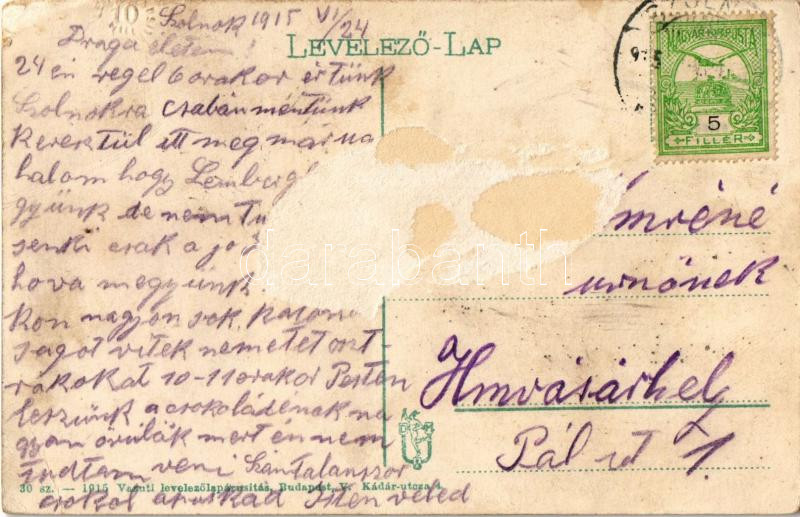 Szolnok 1915 VI/24
Draga életem!
24 én regel 6 orakor értünk
Szolnokra csabán mentünk
Keresztül itt meg már
halom hogy Lemberg
gyünk de nem tu
senki csak a jó
hova megyünk.
kon nagyon sok, katona
ságot vitek nemetet oszt-
rákokat 10-11 orakor Pesten
leszünk a csokoládénak na
gyon örülök mert én nem
tudtam veni Szántalanszor
csokol apuskád Isten veled
LEVELEZŐ-LAP
MAGYAR KIR. POSTA
5
FILLÉR
mréné
urnőnek
Hmvásárhely
Pál ut 1.
30 sz. — 1915 Vasuti levelezőlapárusitás, Budapest, V. Kádár-utcza 4.
darabanth